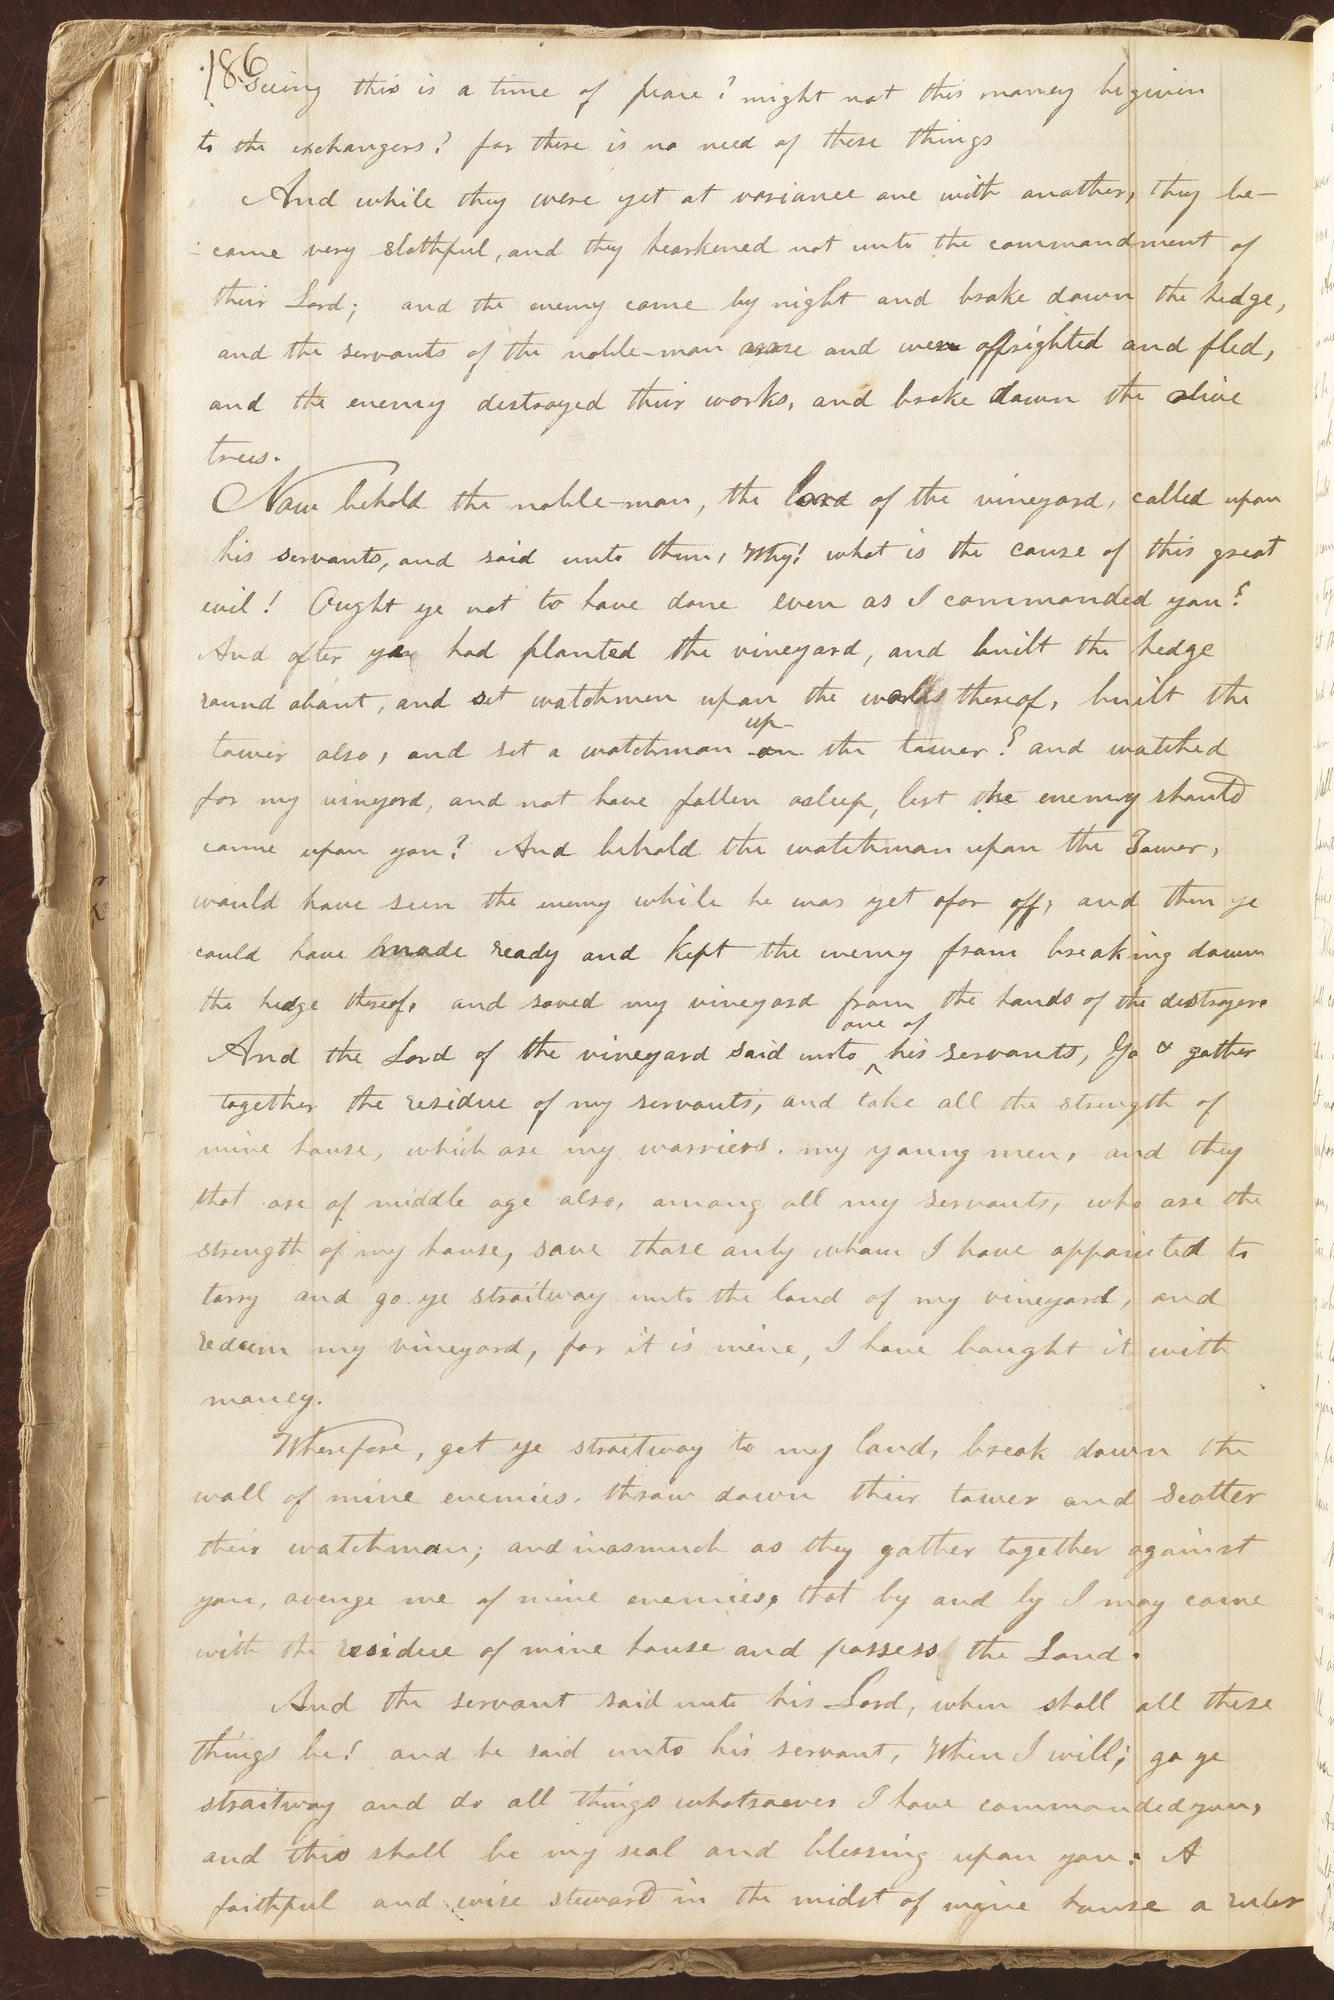 186
seeing this is a time of peace? might not this money be given
to the exchangers? for there is no need of these things
And while they were yet at variance one with another, they be-
-came very slothful, and they hearkened not unto the commandment of
their Lord; and the enemy came by night and broke down the hedge,
and the servants of the noble-man arose and were affrighted and fled,
and the enemy destroyed their works, and broke down the olive
trees.
Now behold the noble-man, the lord of the vineyard, called upon
his servants, and said unto them, Why! what is the cause of this great
evil! Ought ye not to have done even as I commanded you?
And after ye had planted the vineyard, and built the hedge
round about, and set watchmen upon the walls thereof, built the
tower also, and set a watchman up-on the tower? and watched
for my vineyard, and not have fallen asleep, lest the enemy should
come upon you? And behold the watchman upon the Tower,
would have seen the enemy while he was yet afar off, and then ye
could have made ready and kept the enemy from breaking down
the hedge thereof, and saved my vineyard from the hands of the destroyer.
And the Lord of the vineyard said unto one of his servants, Go & gather
together the residue of my servants, and take all the strength of
mine house, which are my warriers. my young men, and they
that are of middle age also, among all my servants, who are the
strength of my house, save those only whom I have appointed to
tarry and go ye straitway unto the land of my vineyard, and
redeem my vineyard, for it is mine, I have bought it with
money.
Wherefore, get ye straitway to my land, break down the
wall of mine enemies. thraw down their tower and scatter
their watchman; and inasmuch as they gather together against
you, avenge me of mine enemies, that by and by I may come
with the residue of mine house and possess the Land.
And the servant said unto his Lord, when shall all these
things be! and he said unto his servant, When I will; go ye
straitway and do all things whatsoever I have commanded you,
and this shall be my seal and blessing upon you: A
faithful and wise steward in the midst of mine house a ruler